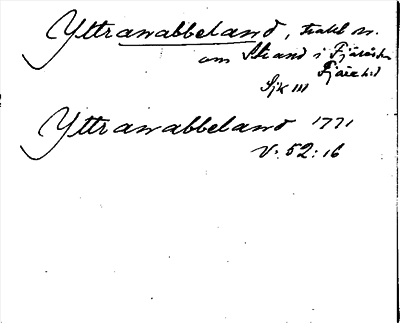 Yttranabbeland, trakt n.
om Strand i Fjärås sn
Fjäre hd
Sjk III
Yttranabbeland 1771
V: 52: 16